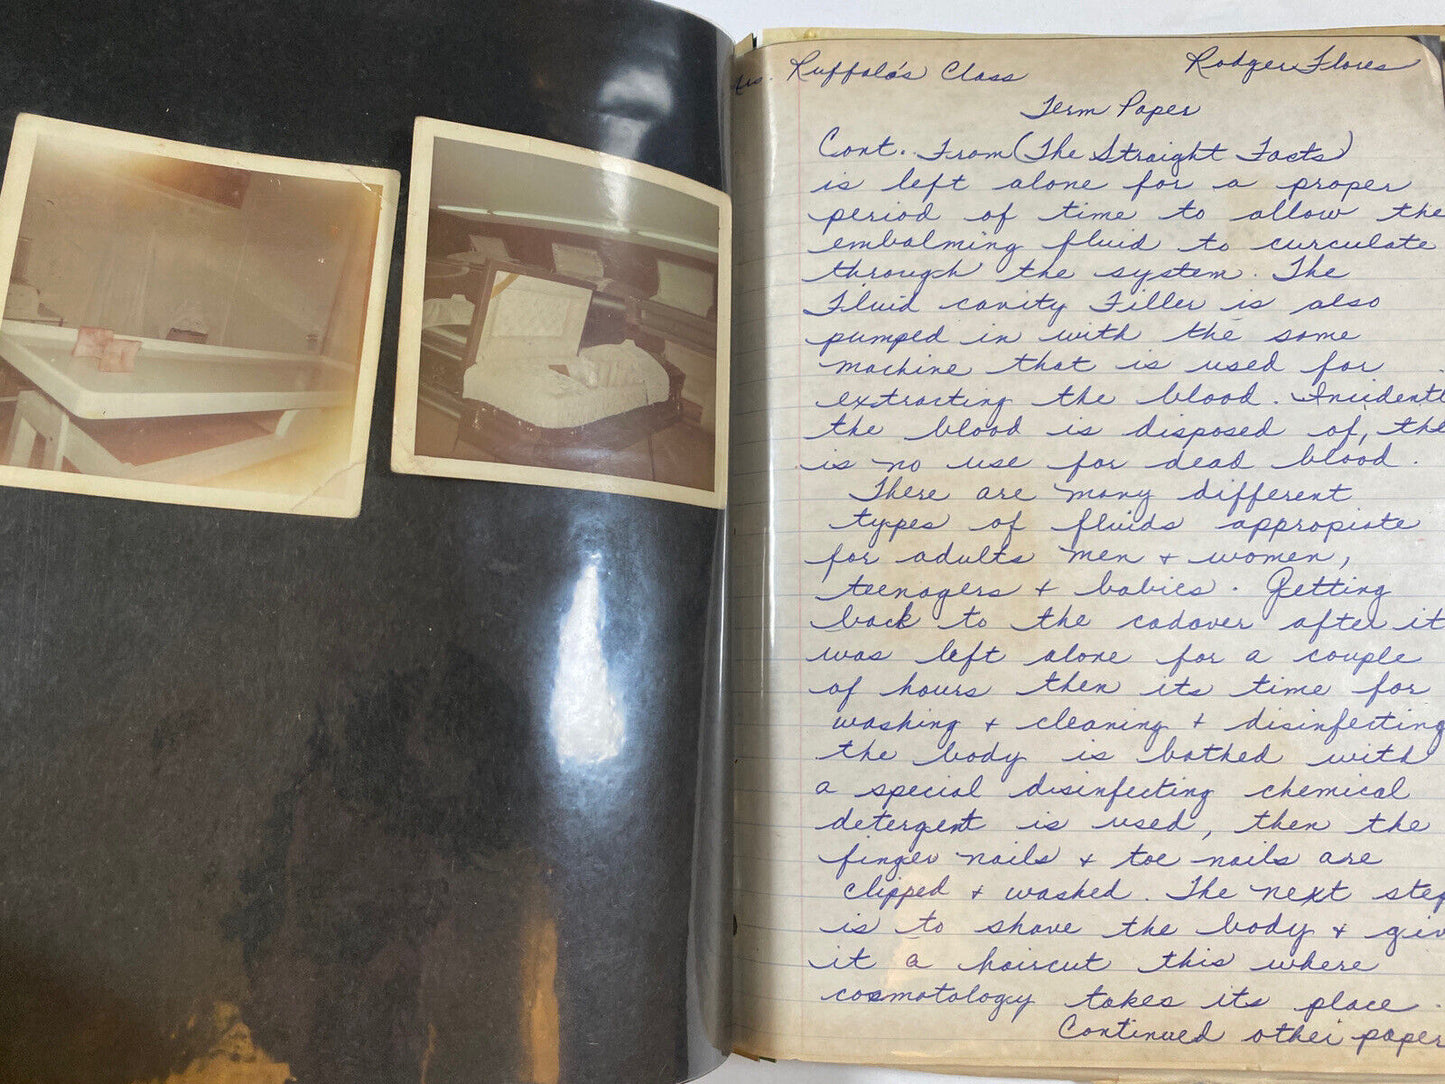 Mrs. Ruffalo's Class Rodger Flores
Term Paper
Cont. From (The Straight Facts)
is left alone for a proper
period of time to allow the
embalming fluid to curculate
through the system. The
Fluid cavity Filler is also
pumped in with the same
machine that is used for
extracting the blood. Incident
the blood is disposed of, the
is no use for dead blood.
There are many different
types of fluids appropiate
for adults men + women,
teenagers + babies. Getting
back to the cadaver after it
was left alone for a couple
of hours then its time for
washing + cleaning + disinfecting
the body is bathed with
a special disinfecting chemical
detergent is used, then the
finger nails + toe nails are
clipped + washed. The next step
is to shave the body + giv
it a haircut this where
cosmotology takes its place.
Continued other paper